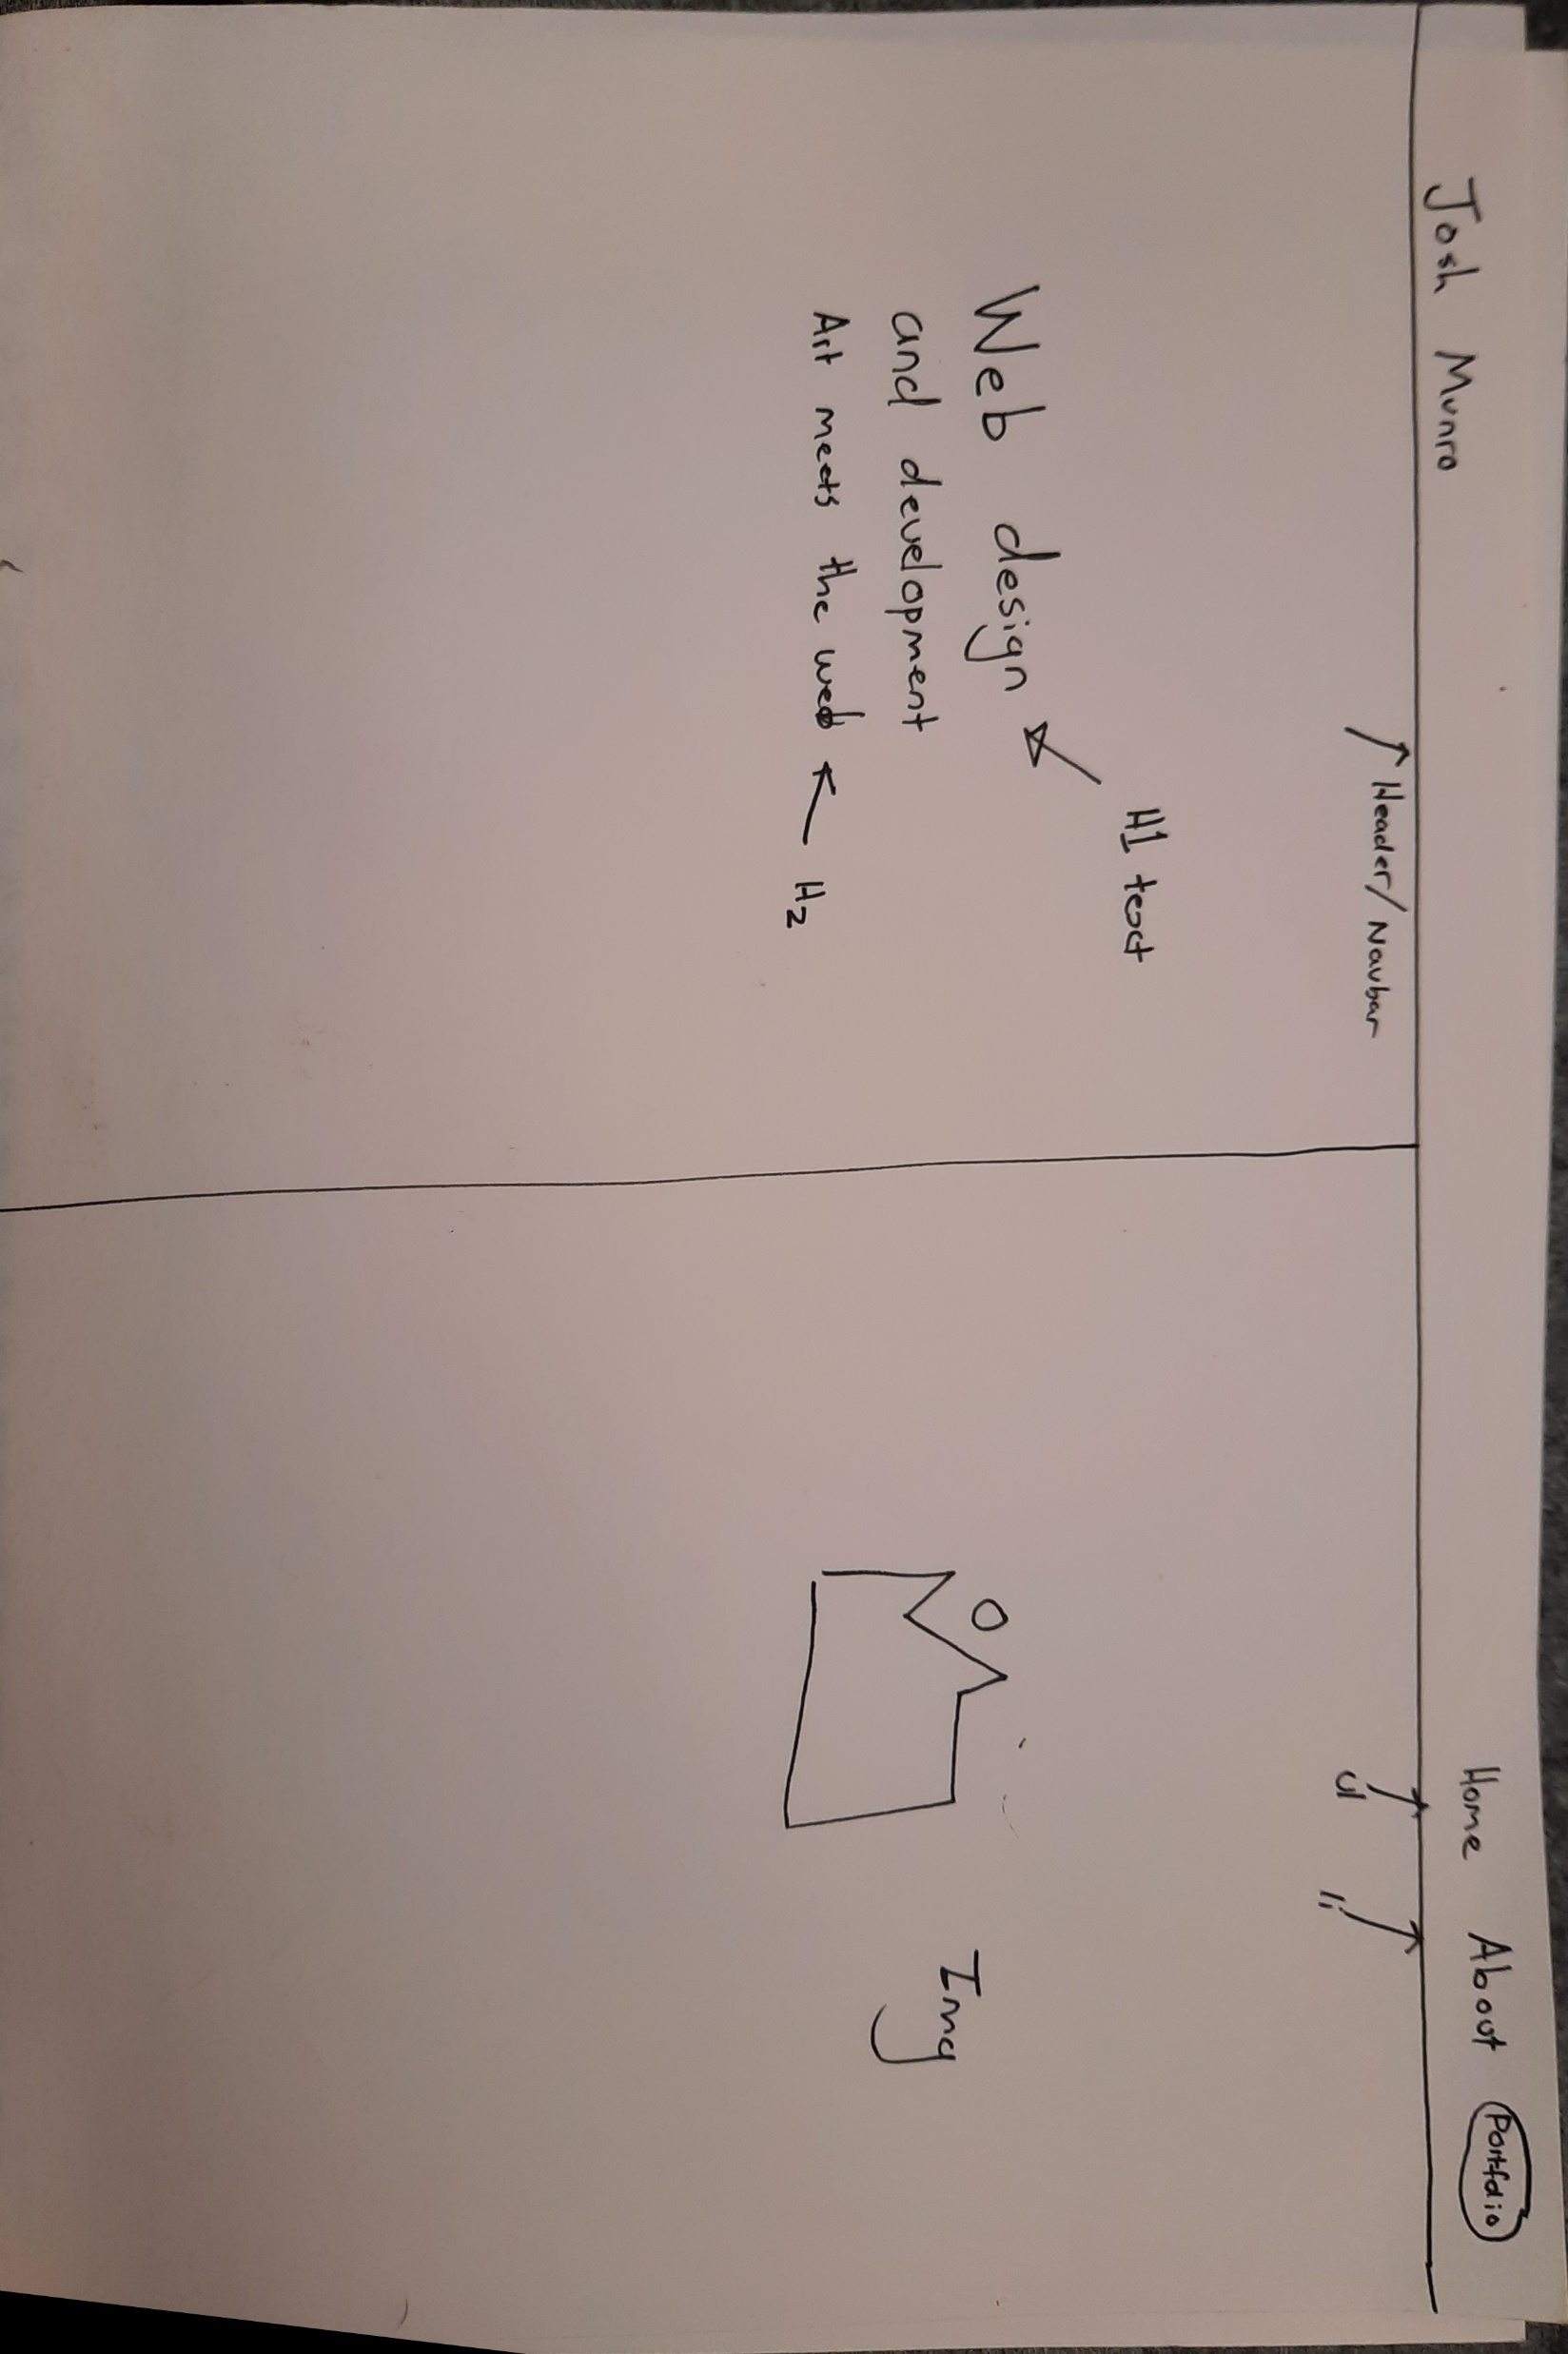 Josh Munro
Home About Portfolio
Header/Navbar
ul li
H1 text
Web design
and development
Art meets the web
H2
Img